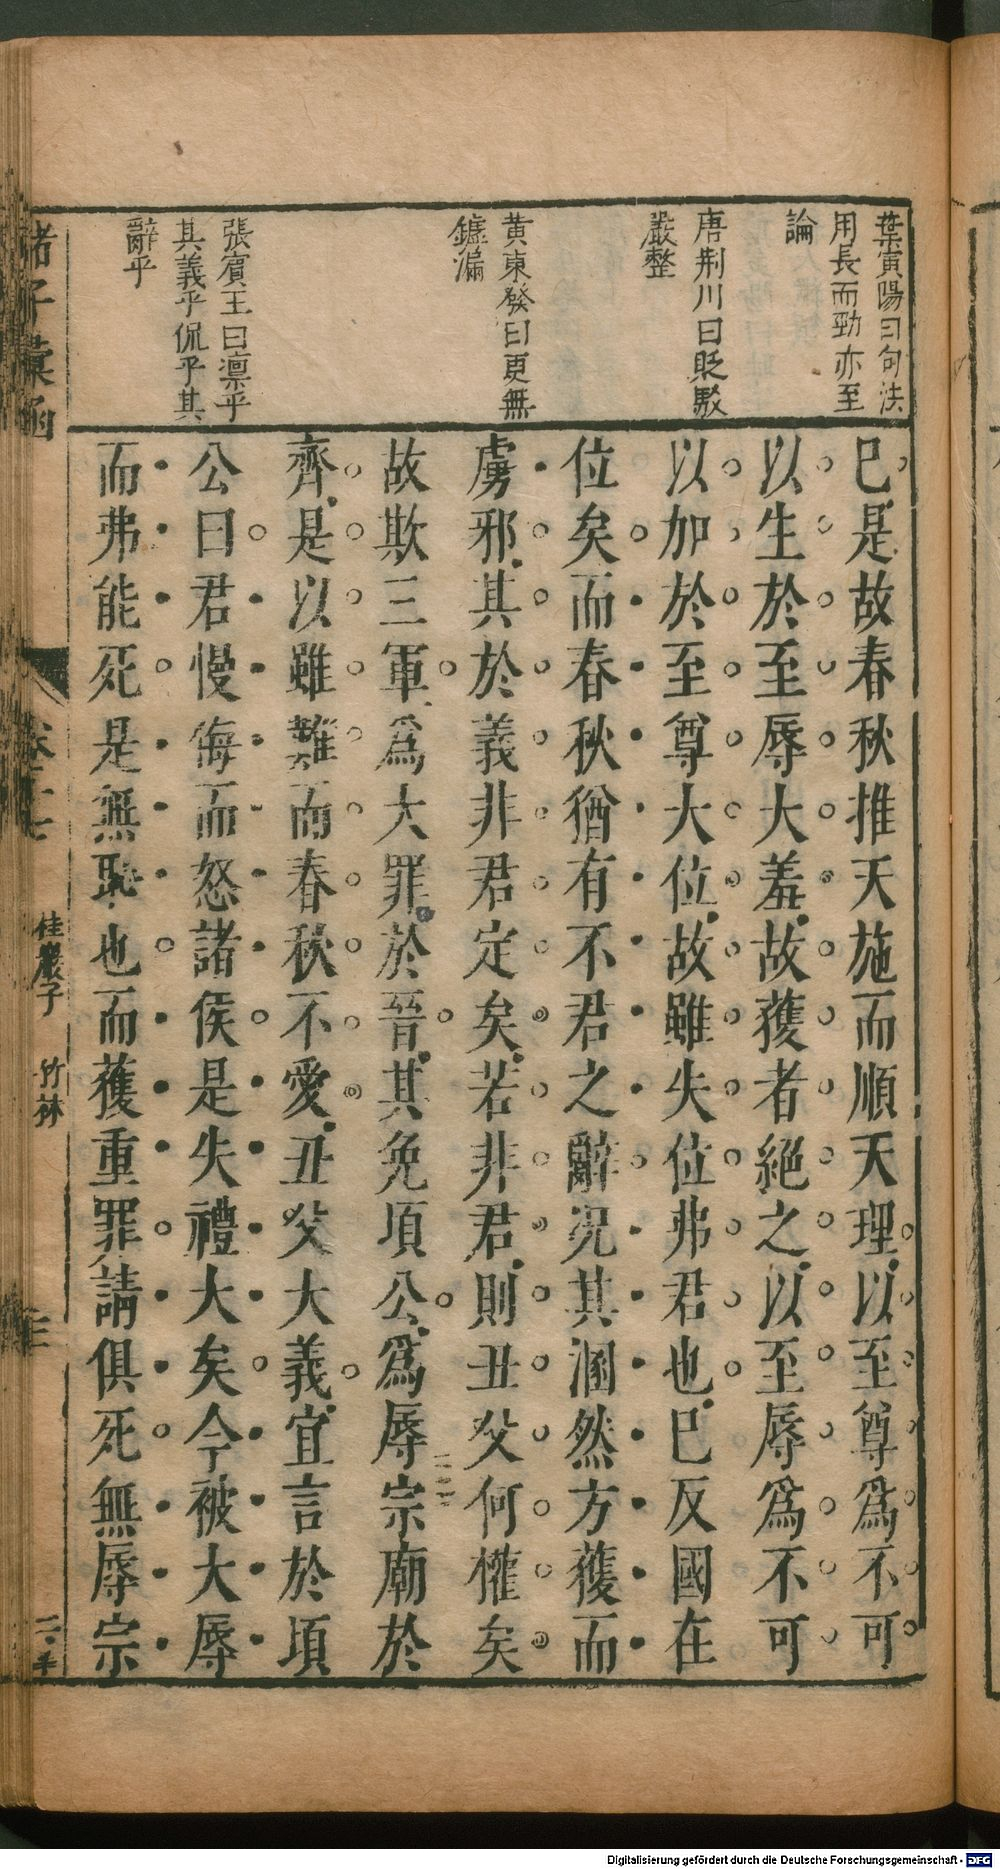 葉寅陽曰句法
用長而勁亦至
論
唐荆川曰貶駁
嚴整
黄東發曰更無
鏬漏
張賓王曰凛乎
其義乎侃乎其
辭乎
已是故春秋推天施而順天理以至尊爲不可
以生於至辱大羞故獲者絕之以至辱爲不可
以加於至尊大位故雖失位弗君也已反國在
位矣而春秋猶有不君之辭况其溷然方獲而
虜邪其於義非君定矣若非君則丑父何權矣
故欺三軍爲大罪於晉其免頃公爲辱宗廟於
齊是以雖難而春秋不愛丑父大義宜言於頃
公曰君慢侮而怒諸侯是失禮大矣今被大辱
而弗能死是無恥也而獲重罪請俱死無辱宗
諸子彙函
卷
桂巖子 竹林
三
Digitalisierung gefördert durch die Deutsche Forschungsgemeinschaft - DFG